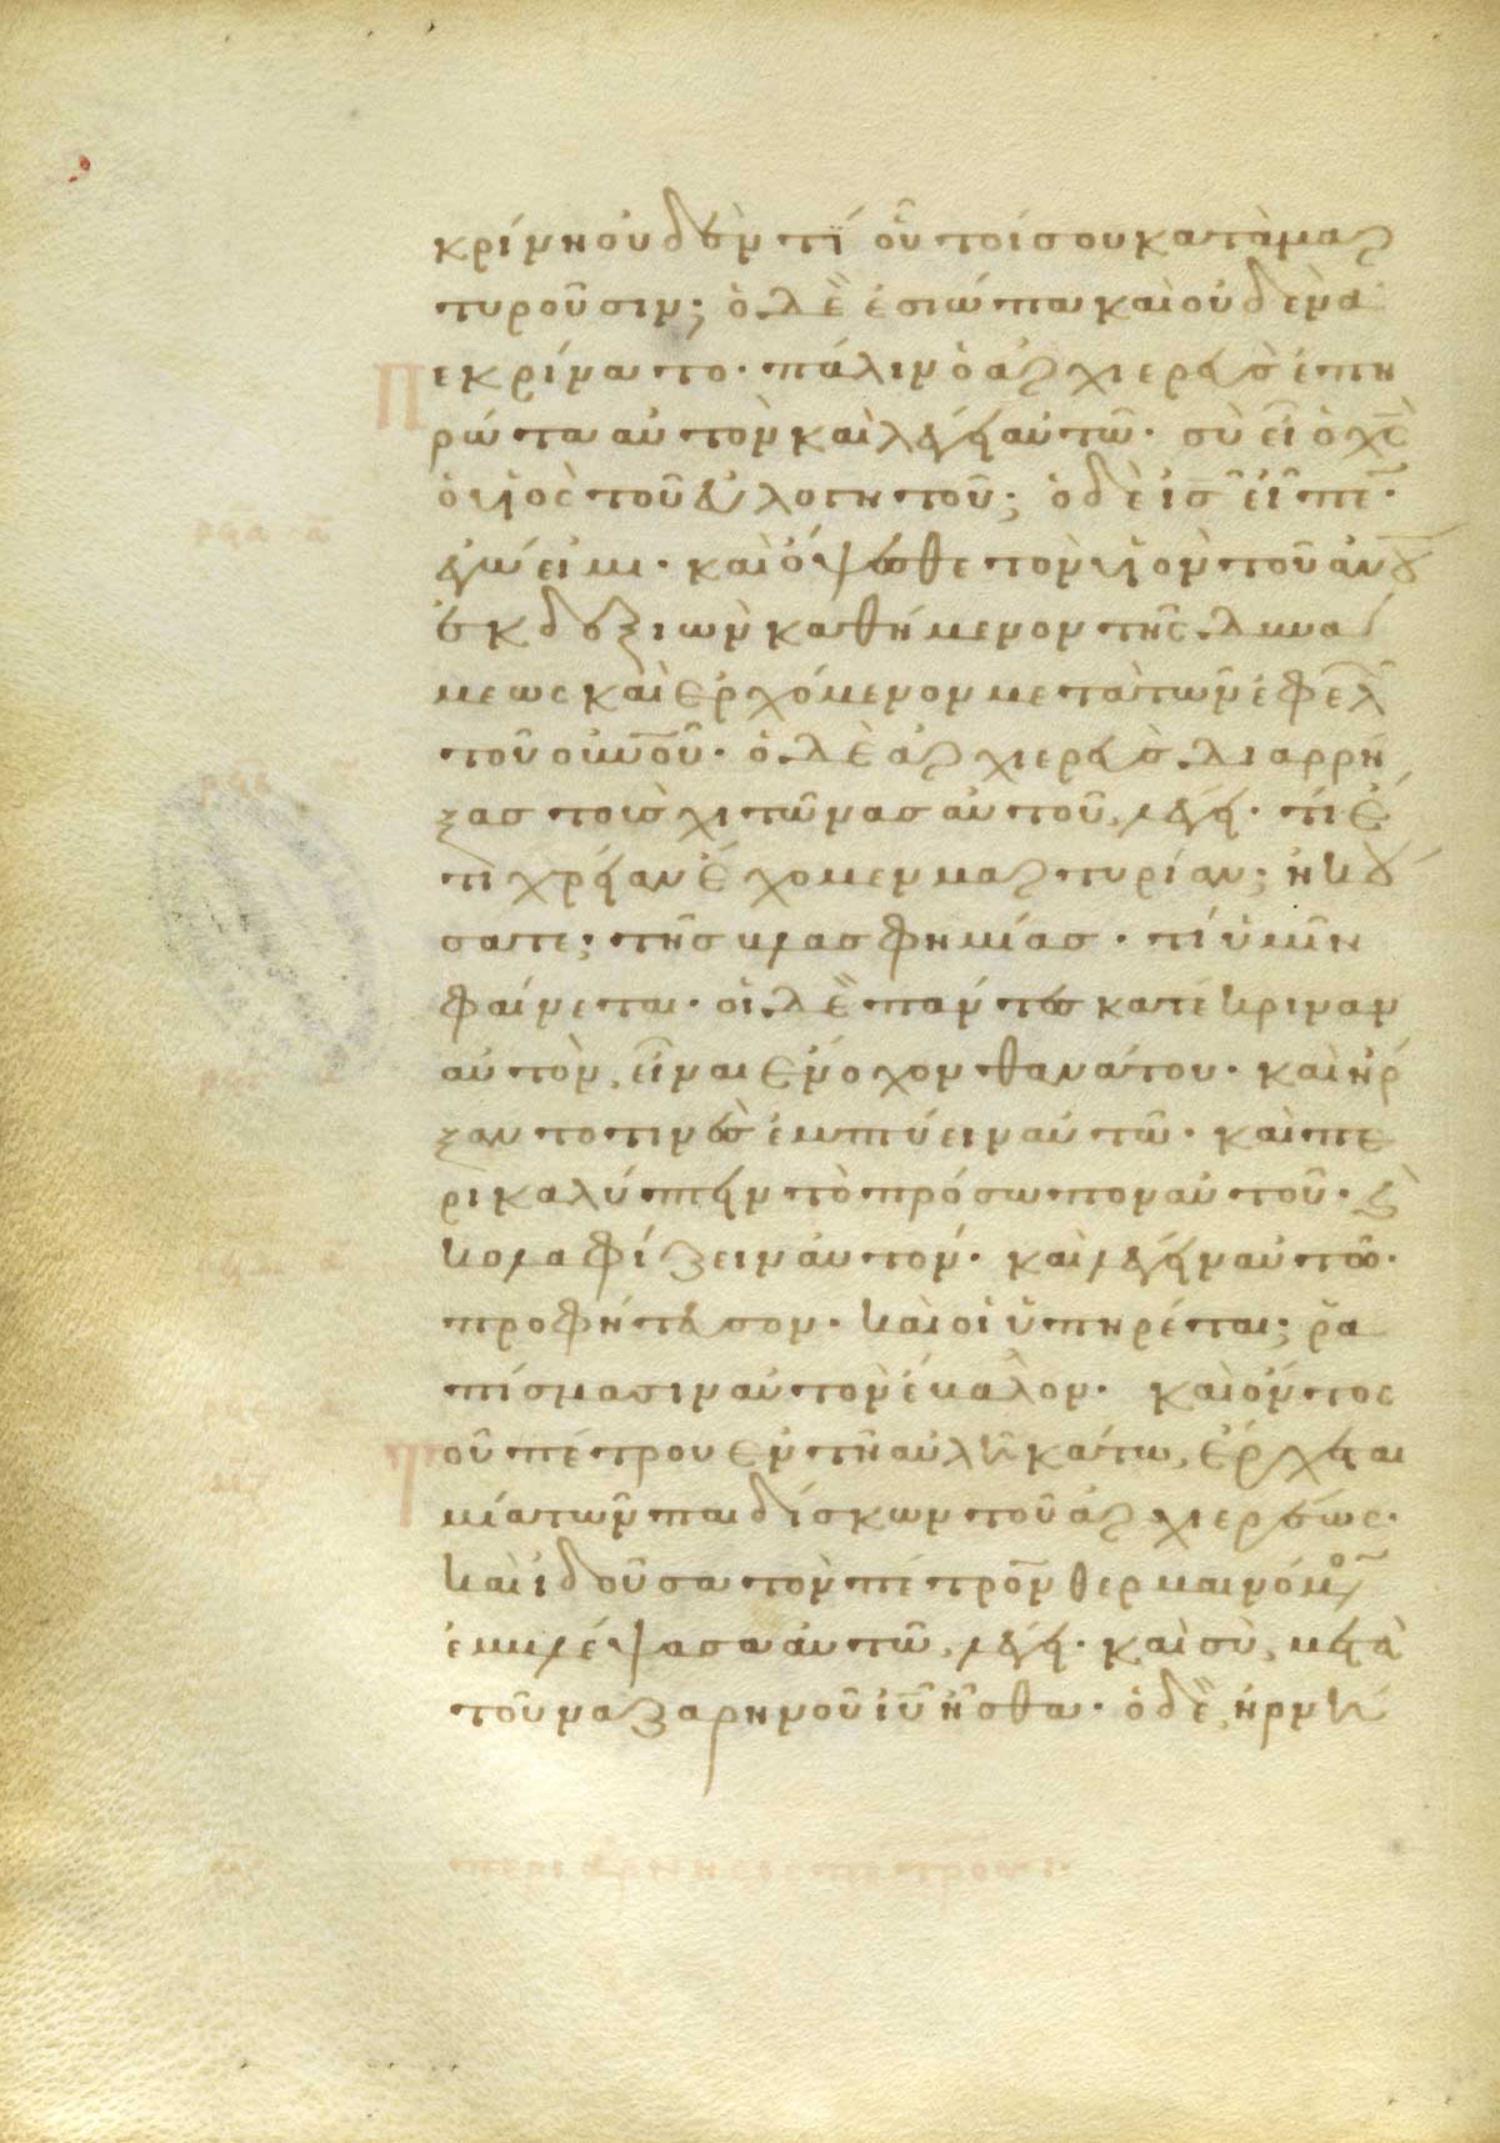 κρίνη οὐδέν τί οὗτοί σου καταμαρ
τυροῦσιν; ὁ δὲ ἐσιώπα καὶ οὐδὲν ἀ
Πεκρίνατο· πάλιν ὁ ἀρχιερεὺς ἐπη
ρώτα αὐτὸν καὶ λέγει αὐτῶ· σὺ εἶ ὁ χς
ὁ υἱὸς τοῦ εὐλογητοῦ; ὁ δὲ ις εἶπε·
ἐγώ εἰμι· καὶ ὄψεσθε τὸν υἱὸν τοῦ ανου
ἐκ δεξιῶν καθήμενον τῆς δυνά
μεως καὶ ἐρχόμενον μετὰ τῶν εφελ
τοῦ οὐνοῦ· ὁ δὲ ἀρχιερεὺς διαρρή
ξας τοὺς χιτῶνας αὐτοῦ, λέγει· τί ἔ
τι χρείαν ἔχομεν μαρτυρίαν; ἠκού
σατε; τῆς βλασφημίας· τί ὑμῖν
φαίνεται· οἱ δὲ πάντες κατέκριναν
αὐτὸν, εἶναι ἔνοχον θανάτου· καὶ ἤρ
ξαντό τινὲς ἐμπτύειν αὐτῶ· καὶ πε
ρικαλύπτειν τὸ πρόσωπον αὐτοῦ· ϗ
κολαφίζειν αὐτόν· καὶ λέγειν αὐτῶ·
προφήτευσον· καὶ οἱ ὑπηρέται; ῥα
πίσμασιν αὐτὸν ἔβαλον· καὶ ὄντος
τοῦ πέτρου ἐν τῆ αὐλῆ κάτω, ἔρχεται
μία τῶν παιδίσκων τοῦ ἀρχιερέως·
καὶ ἰδοῦσα τὸν πέτρον θερμαινόμον
ἐμβλέψασα αὐτῶ, λέγει· καὶ σὺ, μετὰ
τοῦ ναζαρηνοῦ ιυ ἦσθα· ὁ δὲ, ἠρνή